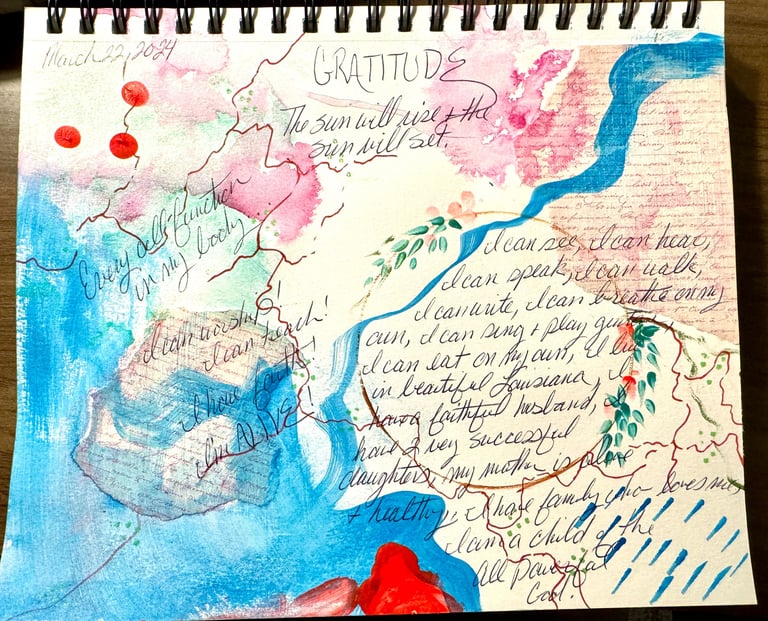 March 22, 2024
GRATITUDE
The sun will rise & the
sun will set.
Every cell function
in my body...
I can worship!
I can teach!
I have faith!
I'm ALIVE!
I can see, I can hear,
I can speak, I can walk,
I can write, I can breathe on my
own, I can sing & play
I can eat on my own, I live
in beautiful Louisiana, I
have a faithful husband,
have 2 very successful
daughters, my mother is alive
& healthy, I have family who loves me,
I am a child of the
All Powerful
God!